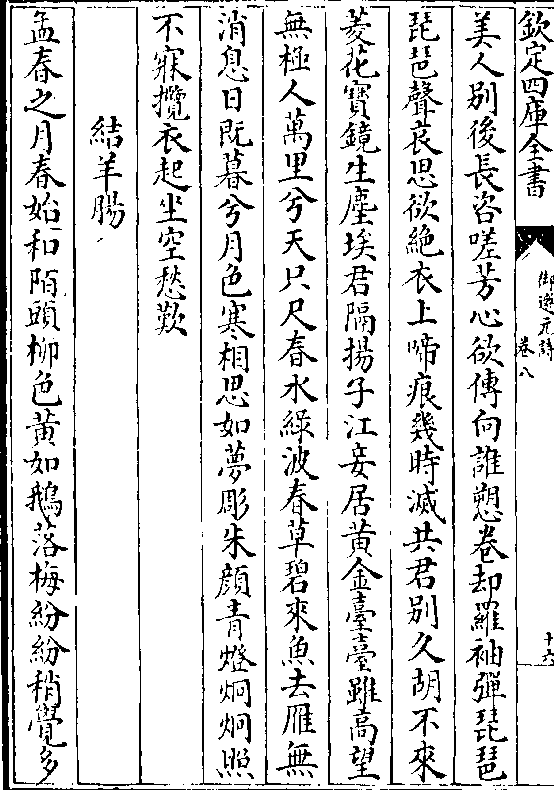 欽定四庫全書
御選元詩
卷八
十六
美人別後長咨嗟芳心欲傳向誰愬卷却羅袖彈琵琶
琵琶聲哀思欲絶衣上啼痕幾時滅共君別久胡不來
菱花寶鏡生塵埃君隔揚子江妾居黄金臺臺雖髙望
無極人萬里兮天只尺春水綠波春草碧來魚去雁無
消息日既暮兮月色寒相思如夢彫朱顔青燈炯炯照
不寐攬衣起坐空愁歎
結羊腸
孟春之月春始和陌頭柳色黄如鵝落梅紛紛稍覺多